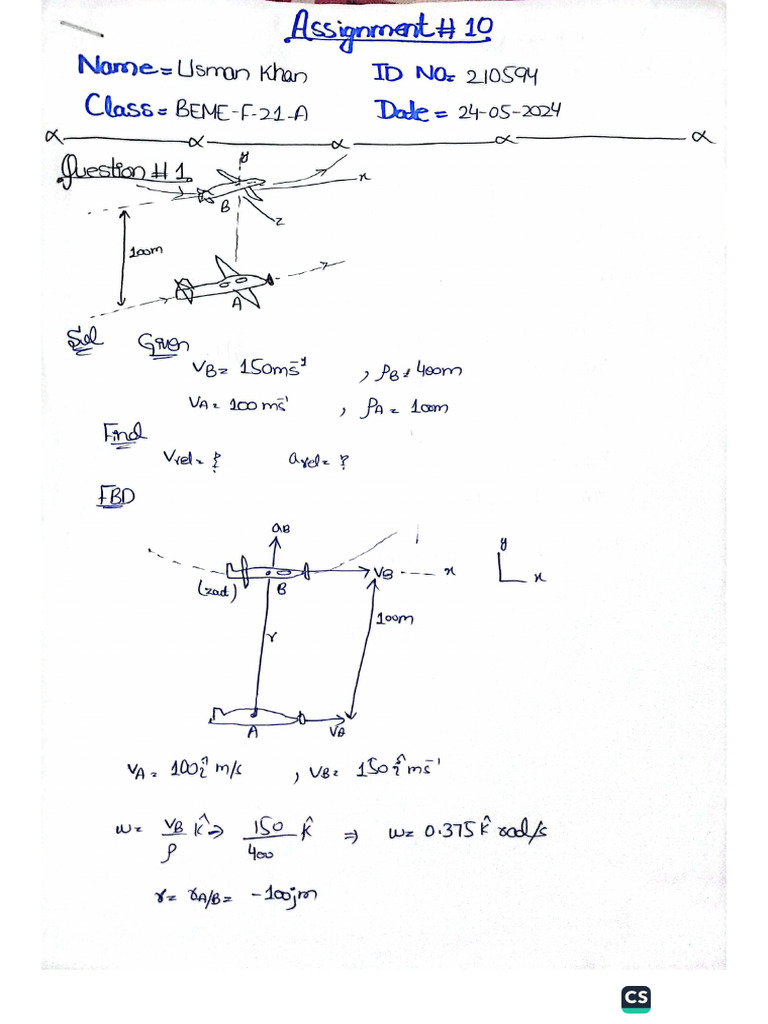 Assignment # 10
Name = Usman Khan ID NO = 210594
Class = BEME-F-21-A Date = 24-05-2024
α α α α α
Question # 1.
y
x
B
z
100m
A
Sol Given
VB = 150ms⁻¹ , ρB = 400m
VA = 100ms⁻¹ , ρA = 100m
Find
Vrel = ? arel = ?
FBD
aB
y
VB x
x
B
100m
r
A
VA = 100î m/s , VB = 150î ms⁻¹
ω = VB/ρ k̂ ⇒ 150/400 k̂ ⇒ ω = 0.375 k̂ rad/s
r = rA/B = -100jm
CS